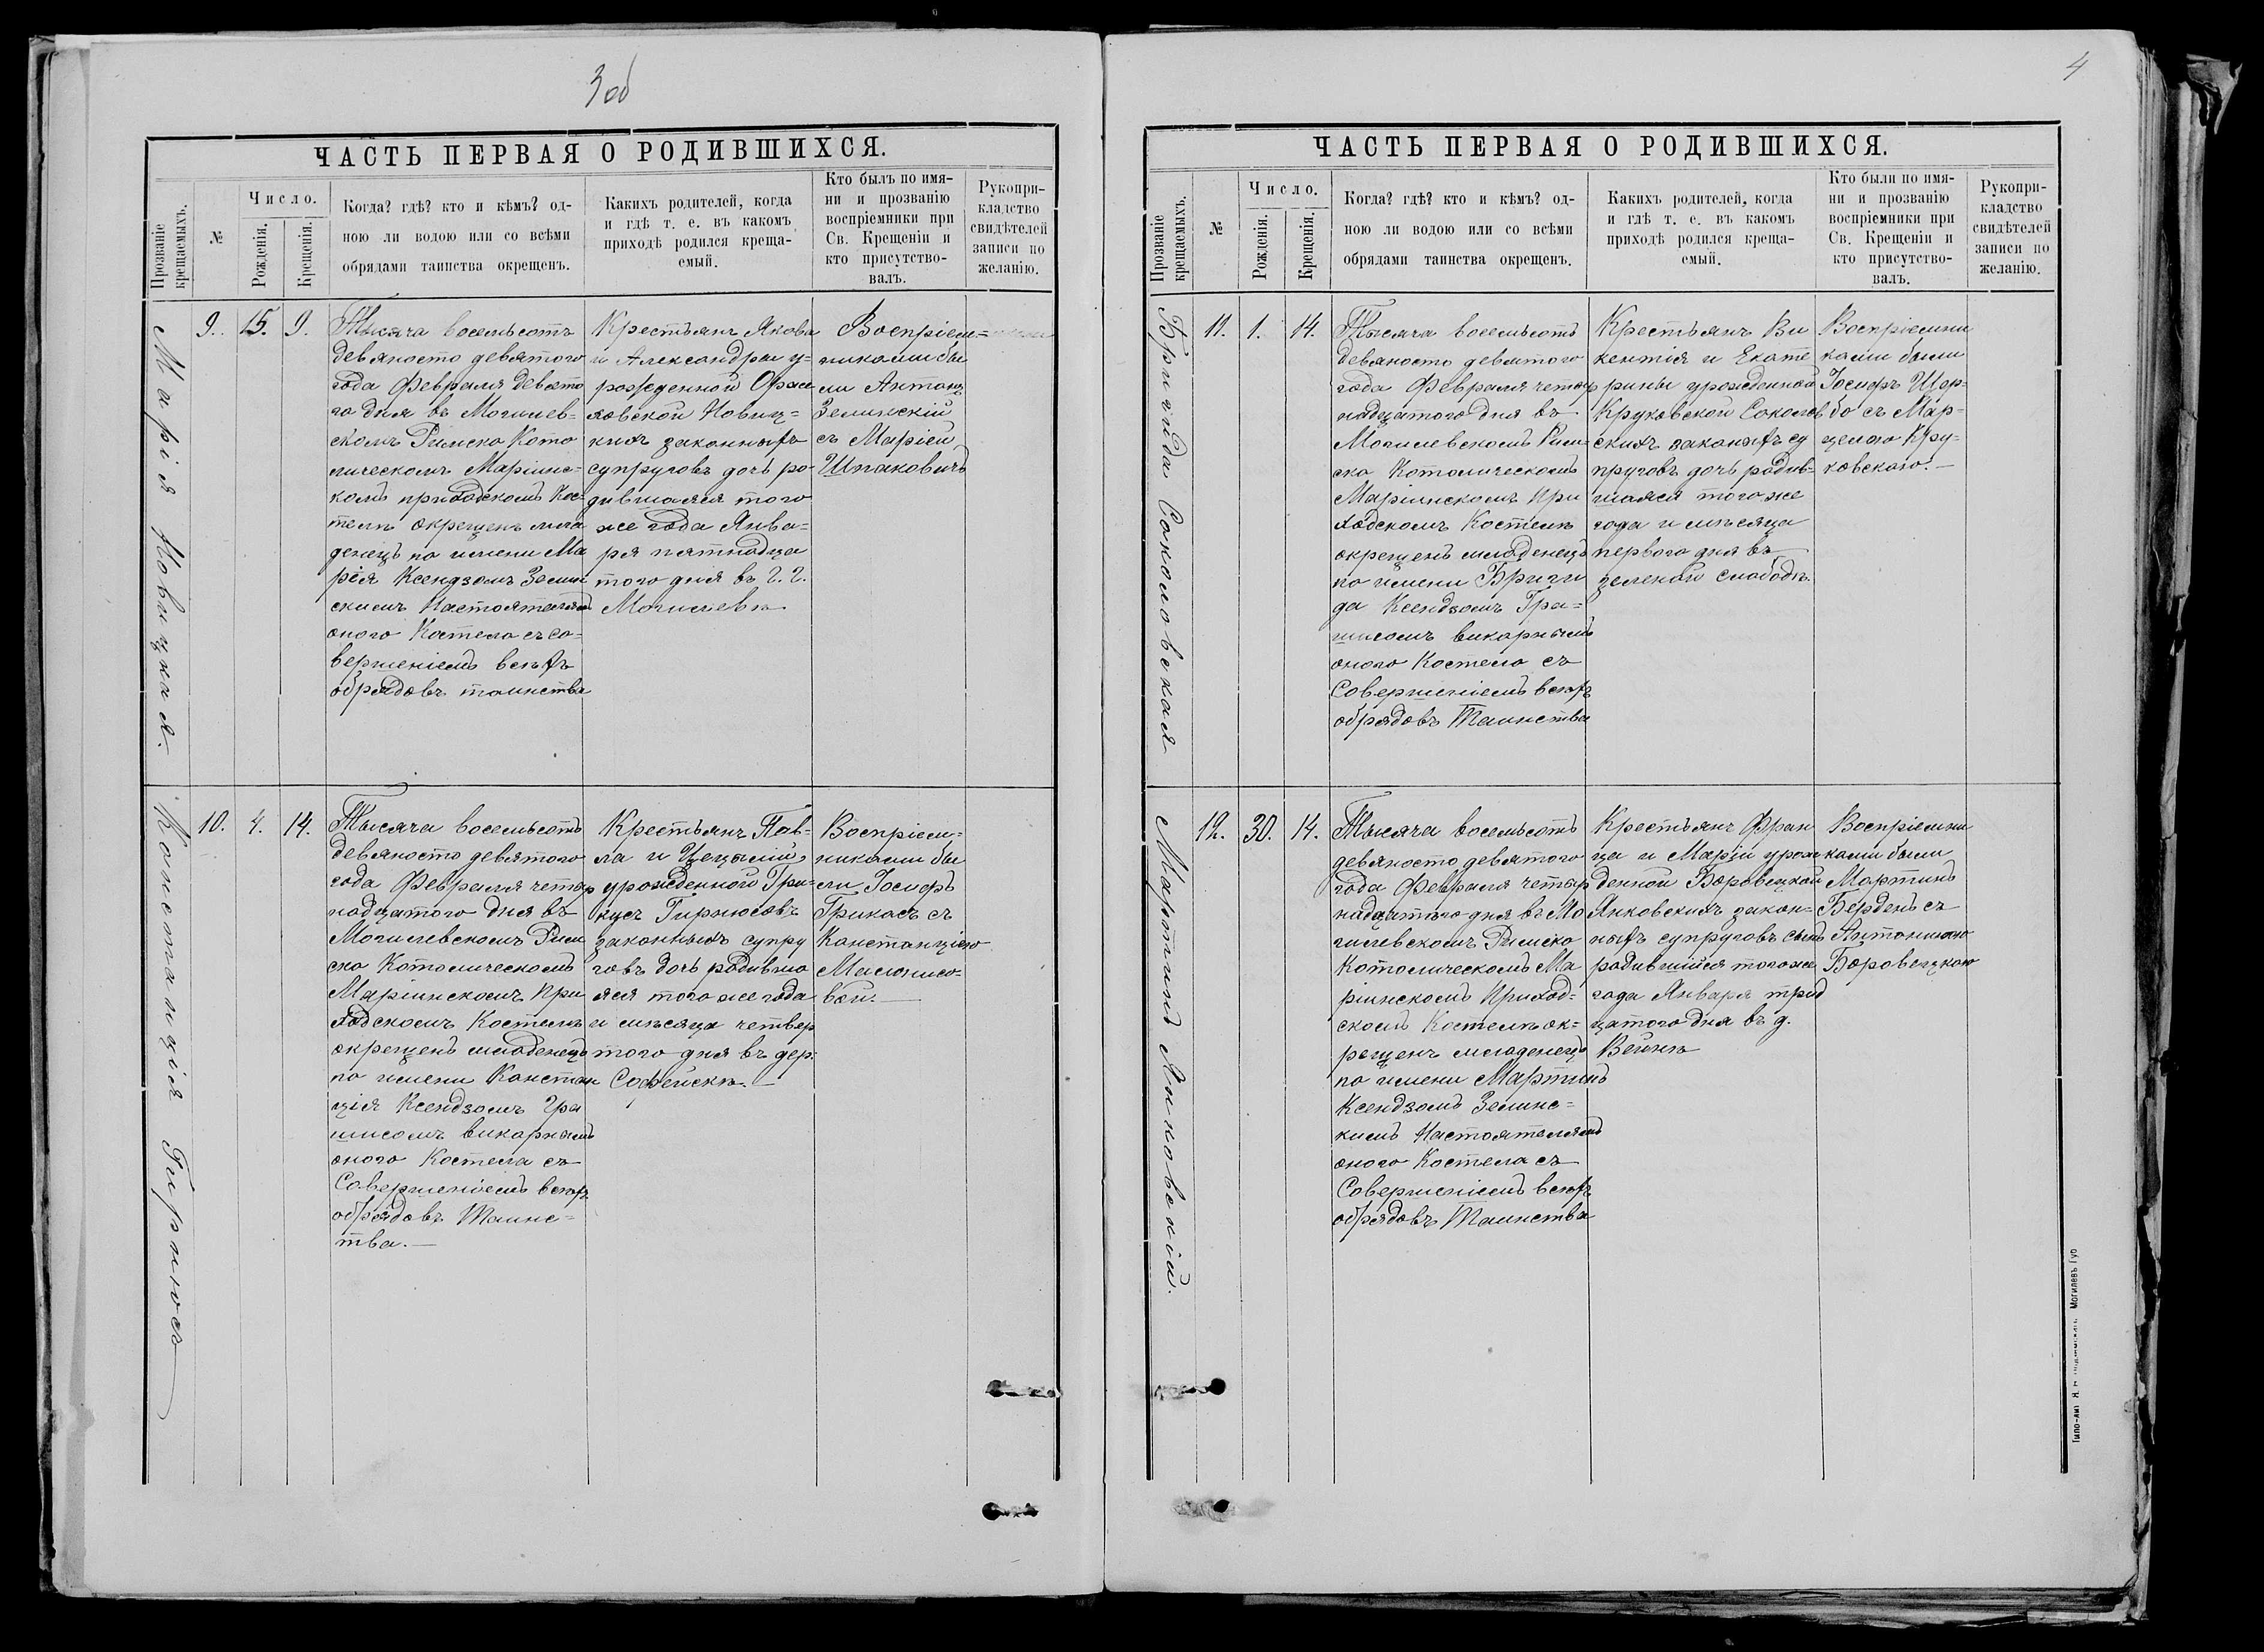 3 об
ЧАСТЬ ПЕРВАЯ О РОДИВШИХСЯ.
Прозваніе
крещаемыхъ.
№
Число.
Рожденія.
Крещенія.
Когда? гдѣ? кто и кѣмъ? од-
ною ли водою или со всѣми
обрядами таинства окрещенъ.
Какихъ родителей, когда
и гдѣ т. е. въ какомъ
приходѣ родился креща-
емый.
Кто былъ по имя-
ни и прозванію
воспріемники при
Св. Крещеніи и
кто присутство-
валъ.
Рукопри-
кладство
свидѣтелей
записи по
желанію.
Марія Новицкая.
9.
15.
9.
Тысяча восемьсотъ
девяносто девятого
года Февраля девято
го дня въ Могилев-
скомъ Римско Като
лическомъ Маріинс-
комъ приходскомъ Кос-
телѣ окрещенъ мла
денецъ по имени Ма
рія Ксендзомъ Зелин
скимъ Настоятелемъ
оного Костела съ со-
вершеніемъ всѣхъ
обрядовъ таинства
Крестьянъ Якова
и Александры у-
рожденной
ковской Новиц-
кихъ законныхъ
супруговъ дочь ро-
дившаяся того
же года Янва-
ря пятнадца
того дня въ г. г.
Могилевѣ
Воспріем-
никами бы
ли Антонъ
Зелинскій
съ Маріей
Шпаковичъ
Констанція Гирнюсъ
10.
4.
14.
Тысяча восемьсотъ
девяносто девятого
года Февраля четыр
надцатого дня въ
Могилевскомъ Рим
ско Католическомъ
Маріинскомъ При
ходскомъ Костелѣ
окрещенъ младенецъ
по имени Констан
ція Ксендзомъ Гра
шисомъ викарнымъ
оного Костела съ
Совершеніемъ всѣхъ
обрядовъ Таинс-
тва.
Крестьянъ Пав-
ла и Цециліи
урожденной Гри-
кусъ Гирнюсовъ
законныхъ супру
говъ дочь родивша
яся того же года
и мѣсяца четвер
того дня въ дер.
Софейскѣ.
Воспріем-
никами бы
ли Іосифъ
Грикасъ съ
Констанціею
Малюнисо-
вой.
4
ЧАСТЬ ПЕРВАЯ О РОДИВШИХСЯ.
Прозваніе
крещаемыхъ.
№
Число.
Рожденія.
Крещенія.
Когда? гдѣ? кто и кѣмъ? од-
ною ли водою или со всѣми
обрядами таинства окрещенъ.
Какихъ родителей, когда
и гдѣ т. е. въ какомъ
приходѣ родился креща-
емый.
Кто были по имя-
ни и прозванію
воспріемники при
Св. Крещеніи и
кто присутство-
валъ.
Рукопри-
кладство
свидѣтелей
записи по
желанію.
Бригида Соколовская
11.
1.
14.
Тысяча восемьсотъ
девяносто девятого
года Февраля четыр
надцатого дня въ
Могилевскомъ Рим-
ско Католическомъ
Маріинскомъ При
ходскомъ Костелѣ
окрещенъ младенецъ
по имени Бриги
да Ксендзомъ Гра-
шисомъ викарнымъ
оного Костела съ
Совершеніемъ всѣхъ
обрядовъ Таинства
Крестьянъ Ви
кентія и Екате
рины урожденной
Круковской Соколов
скихъ законыхъ су
пруговъ дочь родив-
шаяся того же
года и мѣсяца
первого дня въ
зеленой слободѣ.
Воспріемни
ками были
Іосифъ Щер-
бо съ Мар-
целою Кру-
ковскою.
Мартинъ Янковскій.
12.
30.
14.
Тысяча восемьсотъ
девяносто девятого
года Февраля четыр
надцатого дня въ Мо
гилевскомъ Римско
Католическомъ Ма
ріинскомъ Приход-
скомъ Костелѣ ок-
рещенъ младенецъ
по имени Мартинъ
Ксендзомъ Зелинс-
кимъ Настоятелямъ
оного Костела съ
Совершеніемъ всѣхъ
обрядовъ Таинства
Крестьянъ Фран
ца и Маріи урож
денной Боровецкой
Янковскихъ закон-
ныхъ супруговъ сынъ
родившійся того же
года Января трид
цатого дня въ д.
Вейнѣ
Воспріемни
ками были
Мартинъ
Берденъ съ
Антониною
Боровецкою
Могилевъ Губ